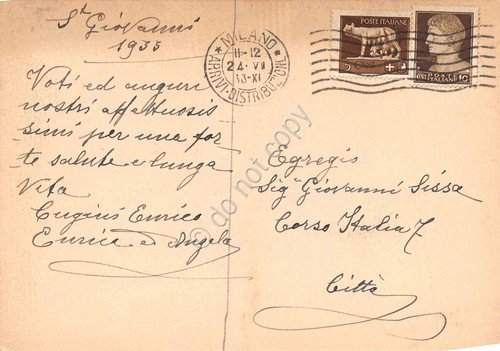 St Giovanni
1935
Voti ed auguri
nostri affettuosis
simi per una for
te salute e lunga
Vita
Cugini Enrico
Enrica ed Angela
MILANO
11-12
24·VI
13-XI
ARRIVI·DISTRIBUZIONE
POSTE ITALIANE
10
Egregio
Sigr Giovanni Sissa
Corso Italia 7
Città
© do not copy